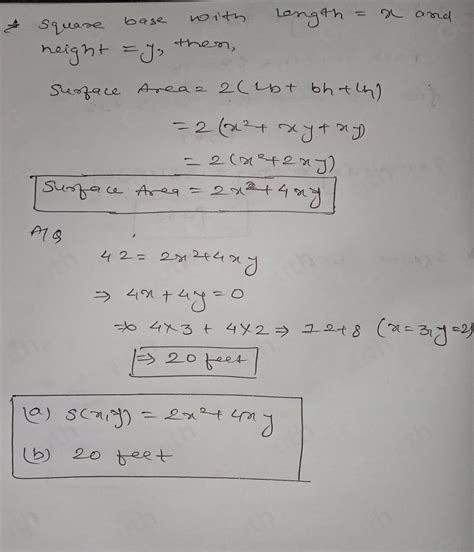 * Square base with length = x and
height = y, then,
Surface Area = 2(lb + bh + lh)
= 2(x² + xy + xy)
= 2(x² + 2xy)
Surface Area = 2x² + 4xy
A/Q
42 = 2x² + 4xy
⇒ 4x + 4y = 0
⇒ 4×3 + 4×2 ⇒ 12+8 (x=3, y=2)
⇒ 20 feet
(a) S(x,y) = 2x² + 4xy
(b) 20 feet